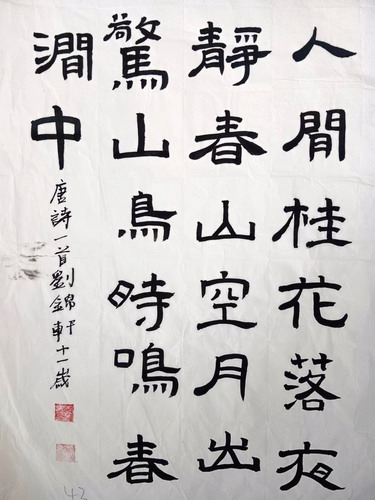 人閒桂花落夜
靜春山空月出
驚山鳥時鳴春
澗中
唐詩一首劉錦軒十一歲
43